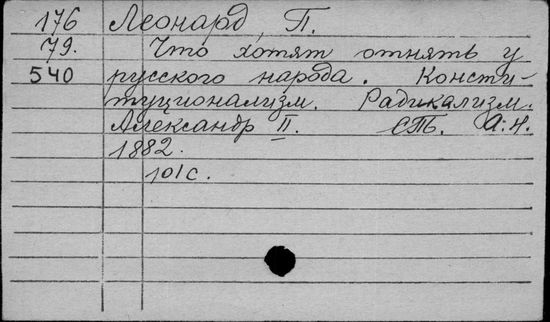 176 Леонард, П.
79. Что хотят отнять у
540 русского народа. Консти-
туционализм. Радикализм.
Александр II. СПб. А.Н.
1882.
101с.